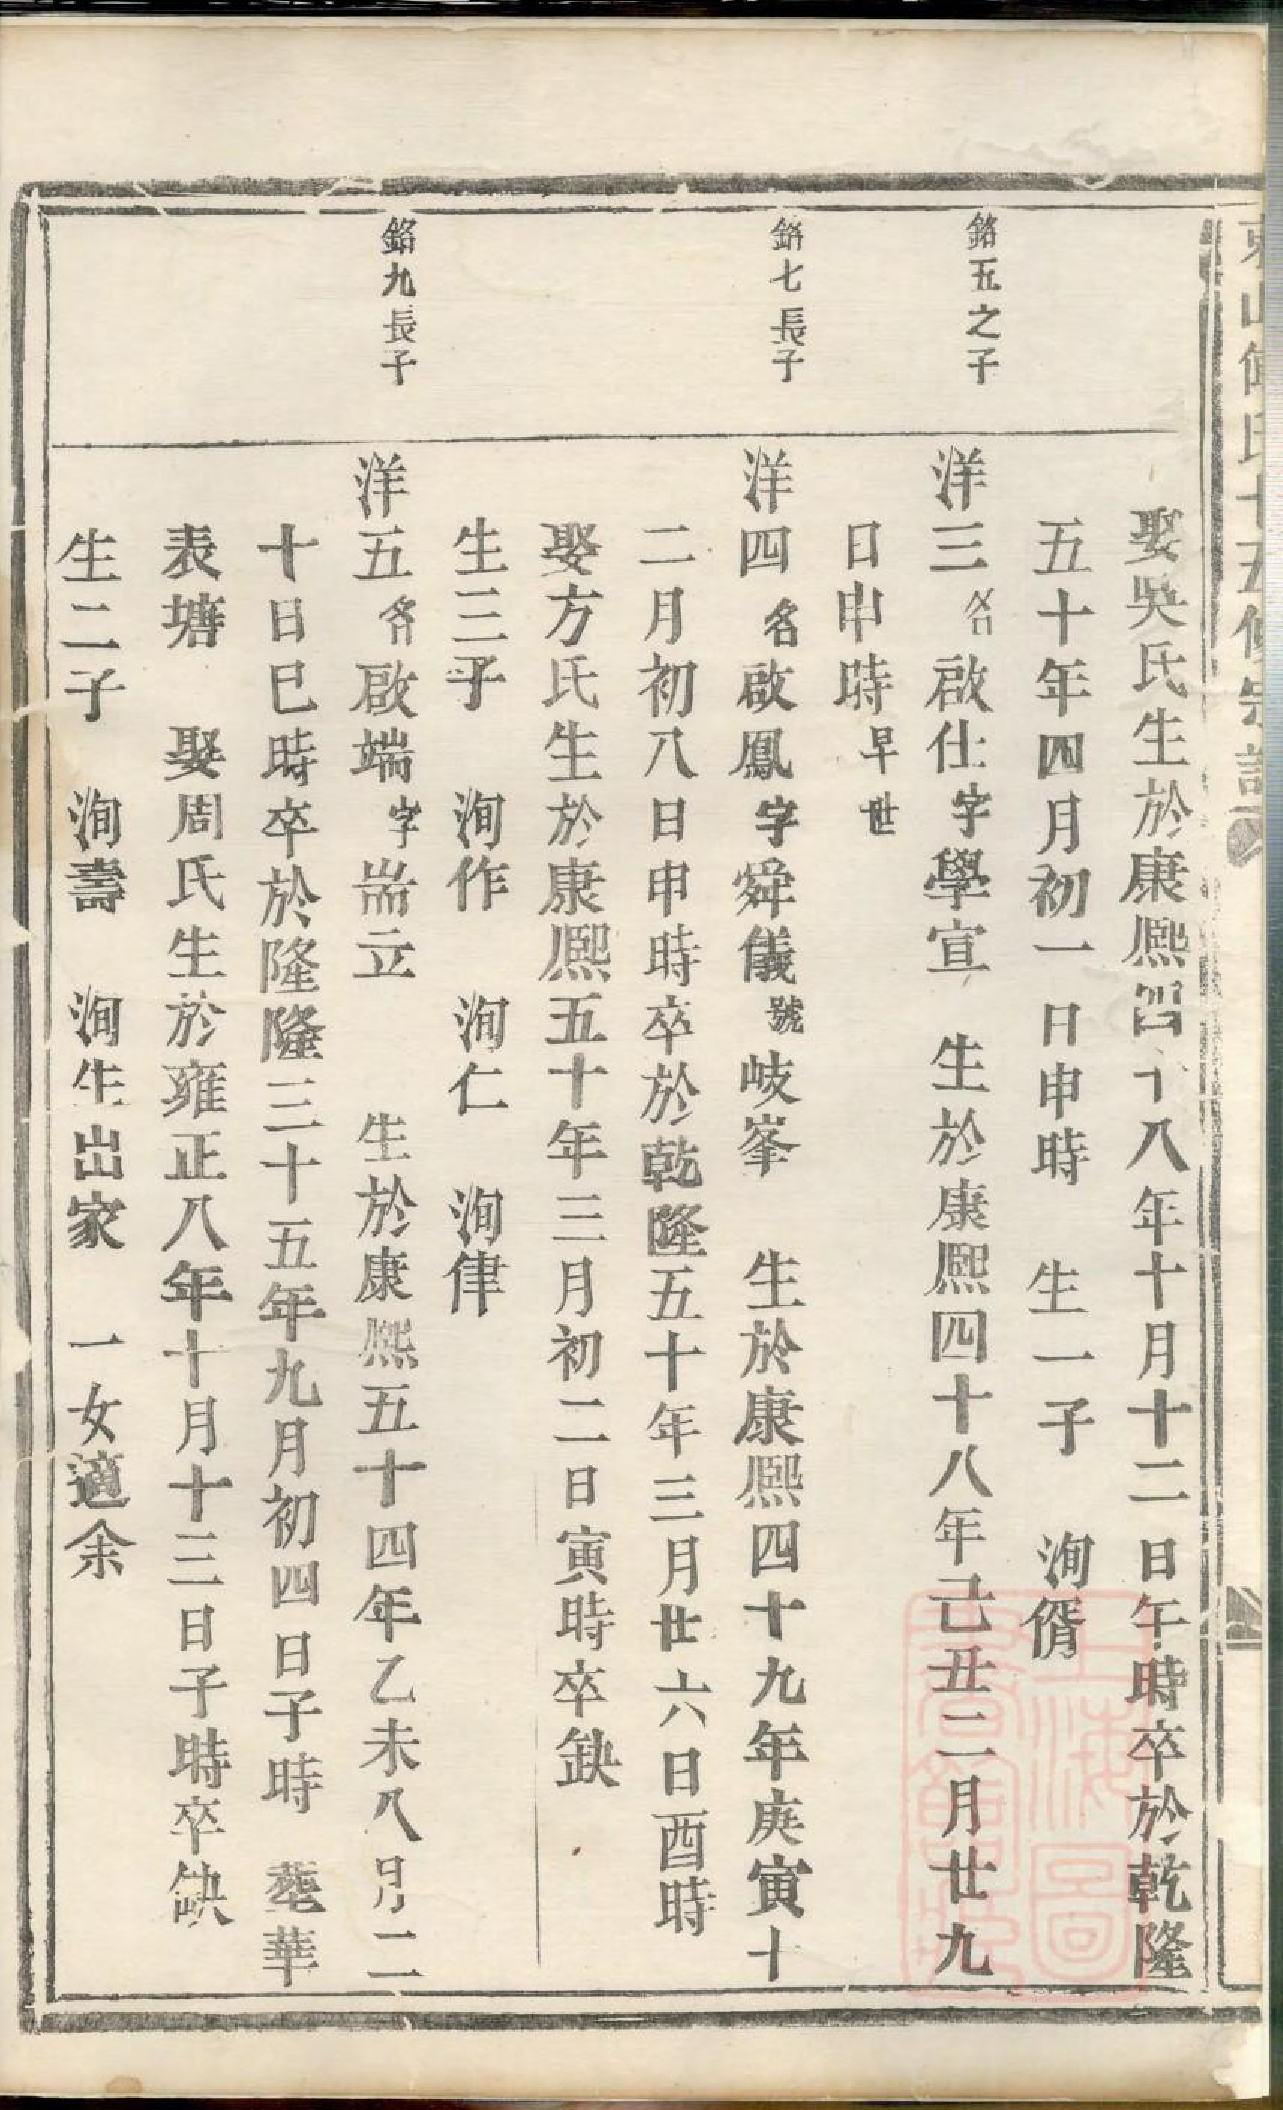 娶吳氏生於康熈四十八年十月十二日午時卒於乾隆
五十年四月初一日申時 生一子 洵偦
銘五之子
洋三 名啟仕字學宣 生於康熈四十八年己丑二月廿九
日申時早世
銘七長子
洋四 名啟鳳字舜儀號岐峯 生於康熈四十九年庚寅十
二月初八日申時卒於乾隆五十年三月廿六日酉時
娶方氏生於康熈五十年三月初二日寅時卒缺
生三子 洵作 洵仁 洵律
銘九長子
洋五 名啟端字耑立 生於康熈五十四年乙未八月二
十日巳時卒於隆隆三十五年九月初四日子時 塟華
表塘 娶周氏生於雍正八年十月十三日子時卒缺
生二子 洵壽 洵生出家 一女適余